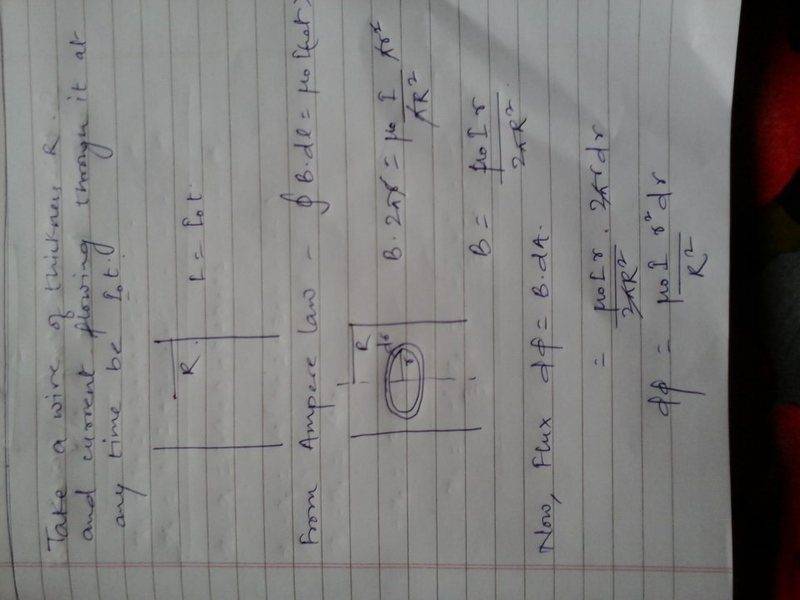 Take a wire of thickness R.
and current flowing through it at
any time be I₀t.
R.
I = I₀t.
From Ampere law - ∮ B.dl = μ₀
R
dr
r
B. 2πr = μ₀ I πr² / πR²
B = μ₀ I r / 2πR².
Now, Flux dφ = B.dA.
= μ₀ I r / 2πR² . 2πr dr
dφ = μ₀ I r² dr / R²